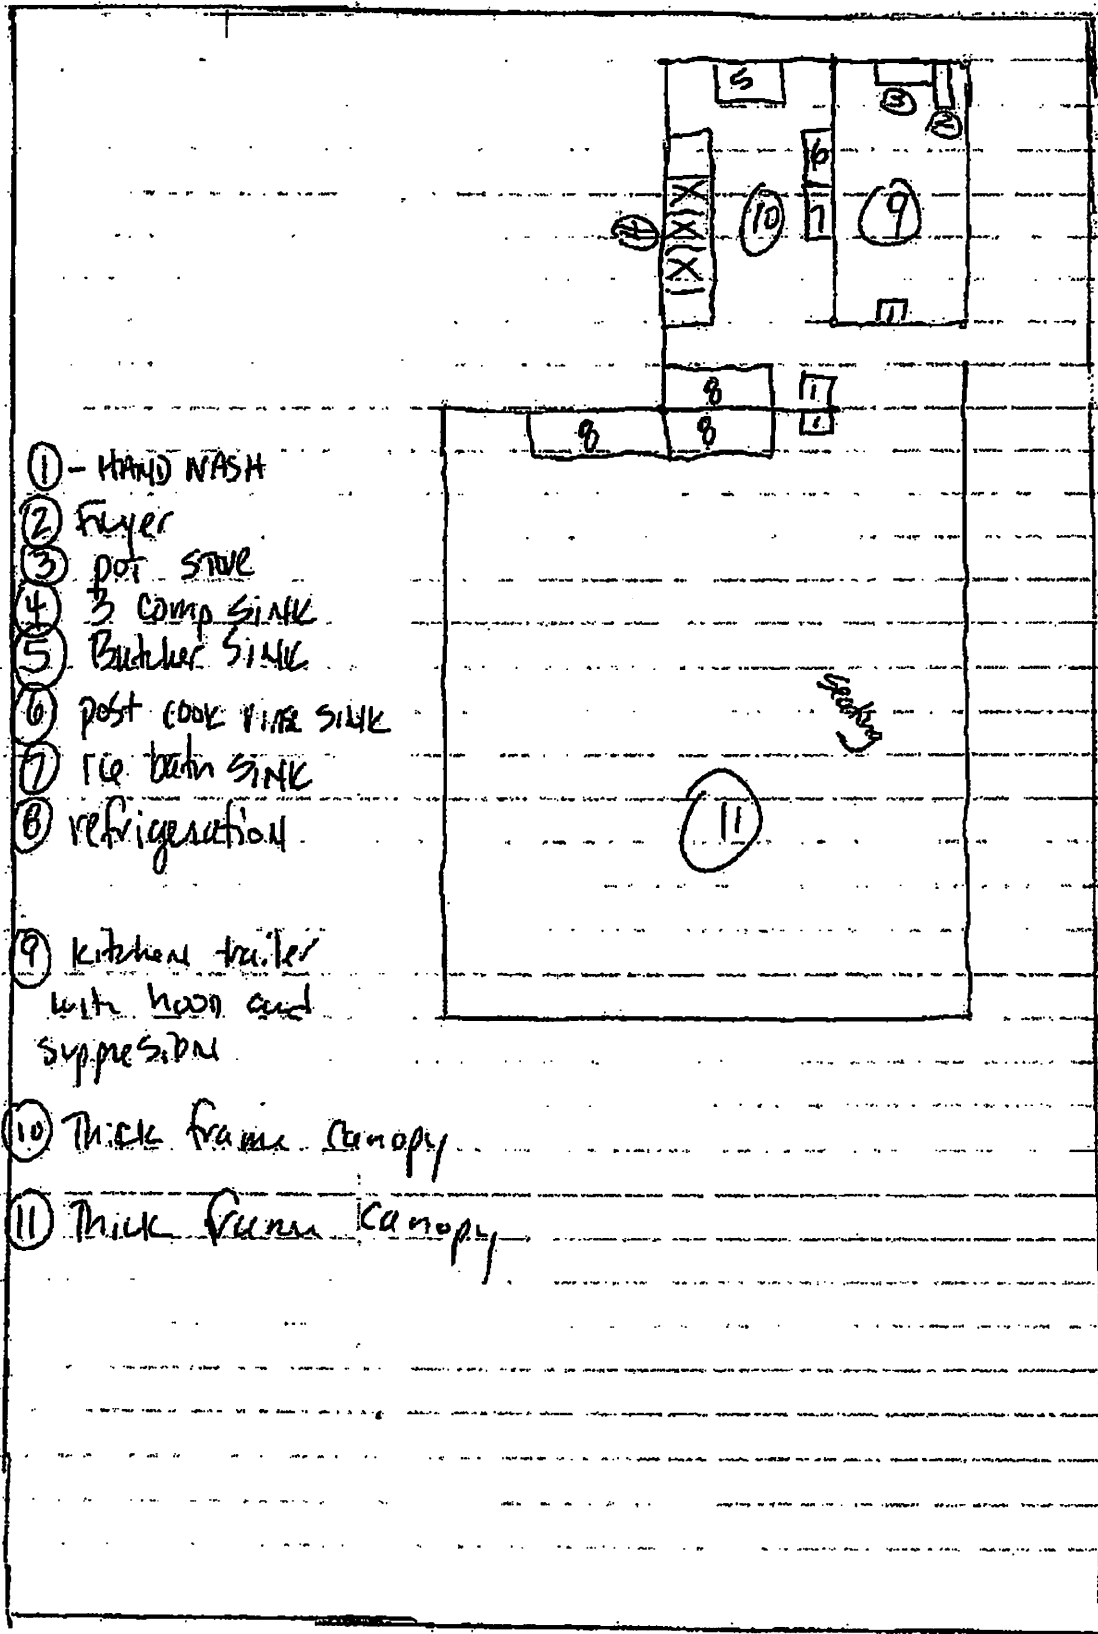 5
3
2
6
4
10
7
9
1
8
1
8
8
1
① - HAND WASH
② Fryer
③ pot stove
④ 3 comp SiNK
⑤ Butcher SiNK
⑥ post cook rinse sink
⑦ ice bath SiNK
⑧ refrigeration
Seating
11
⑨ kitchen trailer
with hood and
suppresion
⑩ Thick frame canopy
⑪ Thick frame canopy